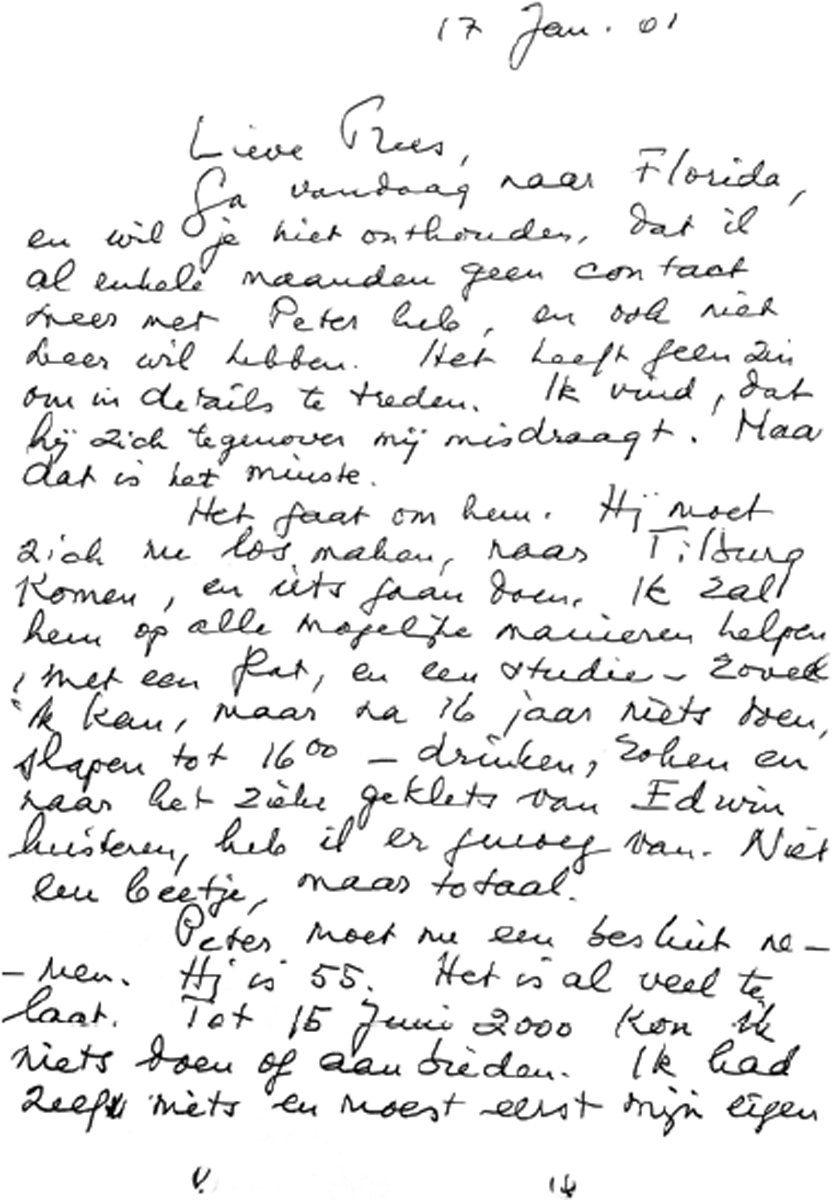 17 Jan. 01
Lieve Trees,
Ga vandaag naar Florida,
en wil je niet onthouden, dat ik
al enkele maanden geen contact
meer met Peter heb, en ook niet
meer wil hebben. Het heeft geen zin
om in details te treden. Ik vind, dat
hij zich tegenover mij misdraagt. Maa
dat is het minste.
Het gaat om hem. Hij moet
zich nu los maken, naar Tilburg
komen, en iets gaan doen. Ik zal
hem op alle mogelijke manieren helpen
, met een flat, en een studie - zoveel
ik kan, maar na 16 jaar niets doen,
slapen tot 16⁰⁰ - drinken, roken en
naar het zieke geklets van Edwin
luisteren, heb ik er genoeg van. Niet
een beetje, maar totaal.
Peter moet nu een besluit ne-
-men. Hij is 55. Het is al veel te
laat. Tot 15 Juni 2000 kon ik
niets doen of aanbieden. Ik had
zelf niets en moest eerst mijn eigen